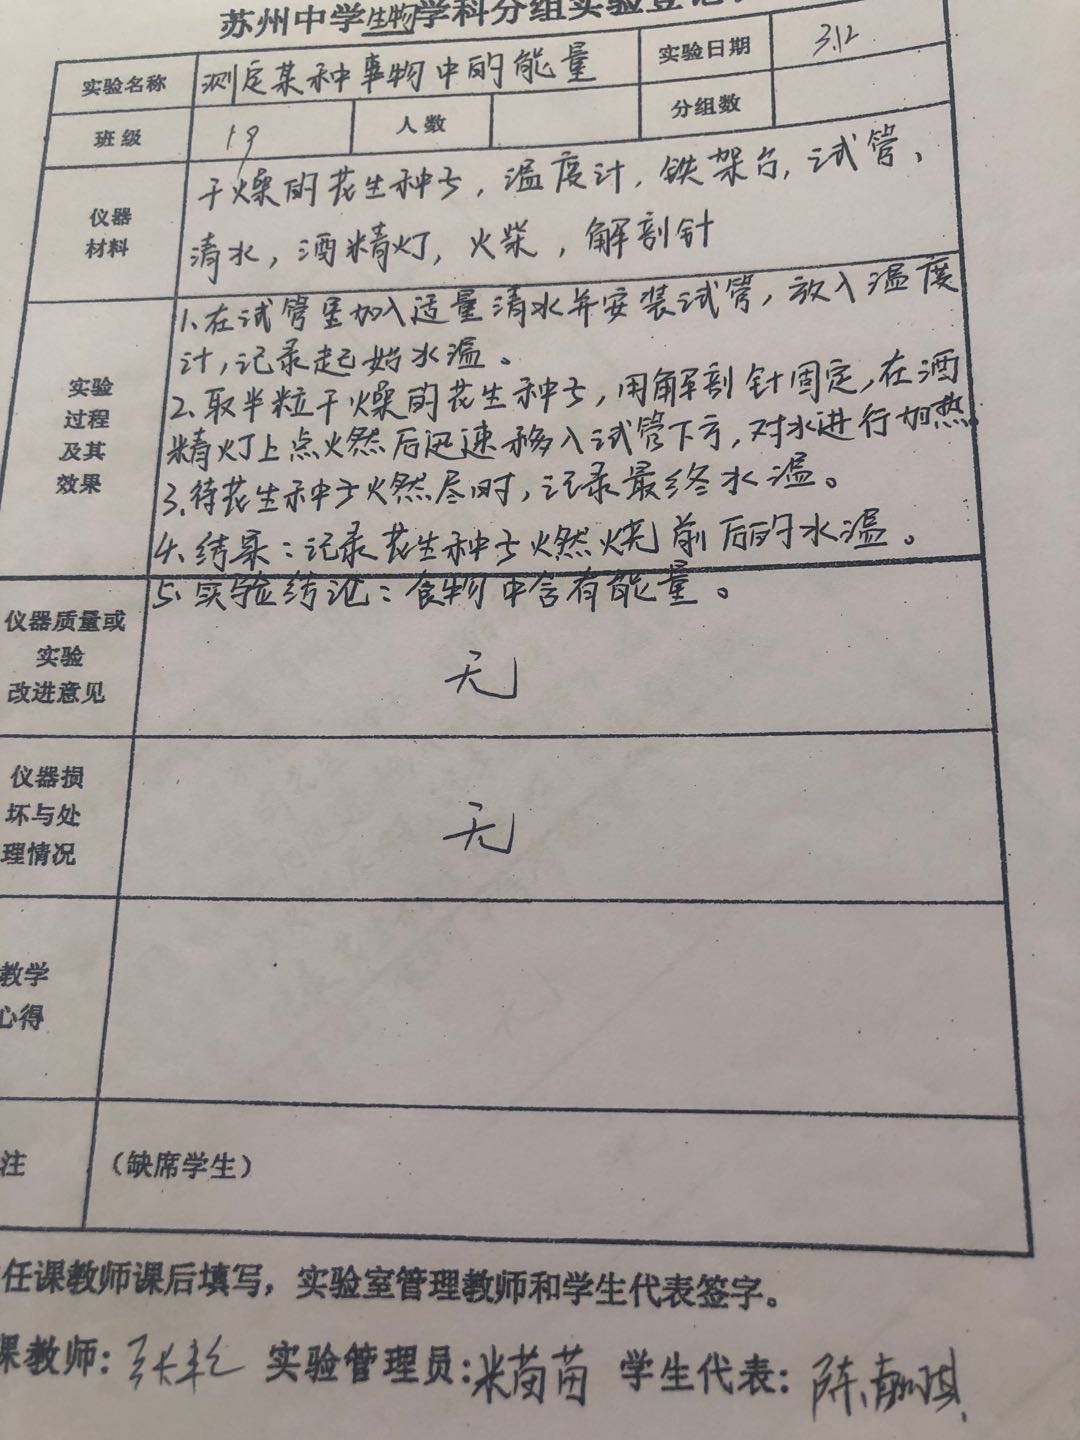 苏州中学生物学科分组实验登记
实验名称 测定某种事物中的能量 实验日期 3.12
班级 19 人数 分组数
仪器材料 干燥的花生种子,温度计,铁架台,试管,
清水,酒精灯,火柴,解剖针
实验过程及其效果 1.在试管里加入适量清水并安装试管,放入温度
计,记录起始水温。
2.取半粒干燥的花生种子,用解剖针固定,在酒
精灯上点火然后迅速移入试管下方,对水进行加热。
3.待花生种子火然尽时,记录最终水温。
4.结果:记录花生种子火燃烧前后的水温。
5.实验结论:食物中含有能量。
仪器质量或实验改进意见 无
仪器损坏与处理情况 无
教学
心得
注 (缺席学生)
任课教师课后填写,实验室管理教师和学生代表签字。
课教师: 实验管理员:米苗苗 学生代表:陈